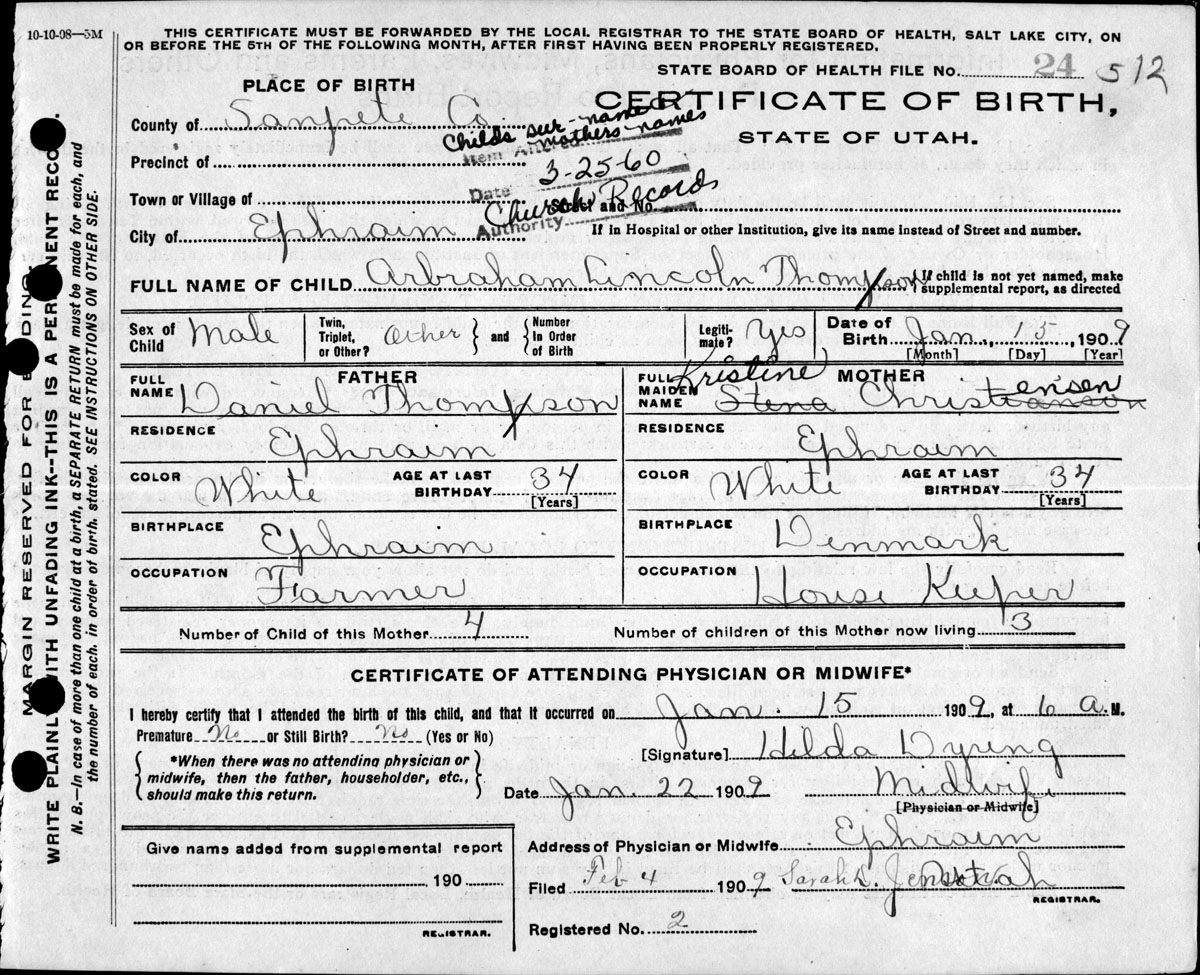 10-10-08—5M
THIS CERTIFICATE MUST BE FORWARDED BY THE LOCAL REGISTRAR TO THE STATE BOARD OF HEALTH, SALT LAKE CITY, ON
OR BEFORE THE 5TH OF THE FOLLOWING MONTH, AFTER FIRST HAVING BEEN PROPERLY REGISTERED.
STATE BOARD OF HEALTH FILE No. 24 512
PLACE OF BIRTH
CERTIFICATE OF BIRTH,
STATE OF UTAH.
County of Sanpete Co
Childs sur-name &
mothers names
Item Altered
Precinct of
Date 3-25-60
Town or Village of
Church Records
Street and No.
Authority
City of Ephraim
If in Hospital or other Institution, give its name instead of Street and number.
FULL NAME OF CHILD Arbraham Lincoln Thompson
If child is not yet named, make
supplemental report, as directed
Sex of Child Male
Twin, Triplet, or Other? Other
and Number In Order of Birth
Legiti- mate? Yes
Date of Birth Jan. 15, 1909
[Month] [Day] [Year]
FATHER
FULL NAME Daniel Thompson
RESIDENCE Ephraim
COLOR White AGE AT LAST BIRTHDAY 34 [Years]
BIRTHPLACE Ephraim
OCCUPATION Farmer
MOTHER
FULL MAIDEN NAME Kristine Stena Christensen
RESIDENCE Ephraim
COLOR White AGE AT LAST BIRTHDAY 34 [Years]
BIRTHPLACE Denmark
OCCUPATION House Keeper
Number of Child of this Mother 4 Number of children of this Mother now living 3
CERTIFICATE OF ATTENDING PHYSICIAN OR MIDWIFE*
I hereby certify that I attended the birth of this child, and that it occurred on Jan. 15 1909, at 6 a. M.
Premature No or Still Birth? No (Yes or No)
[Signature] Hilda Dyring
*When there was no attending physician or
midwife, then the father, householder, etc.,
should make this return.
Date Jan. 22 1909 Midwife
[Physician or Midwife]
Give name added from supplemental report
190
REGISTRAR.
Address of Physician or Midwife Ephraim
Filed Feb 4 1909 Sarah
REGISTRAR.
Registered No. 2
MARGIN RESERVED FOR BINDING.
WRITE PLAINLY WITH UNFADING INK--THIS IS A PERMANENT RECORD.
N. B.—In case of more than one child at a birth, a SEPARATE RETURN must be made for each, and
the number of each, in order of birth, stated. SEE INSTRUCTIONS ON OTHER SIDE.